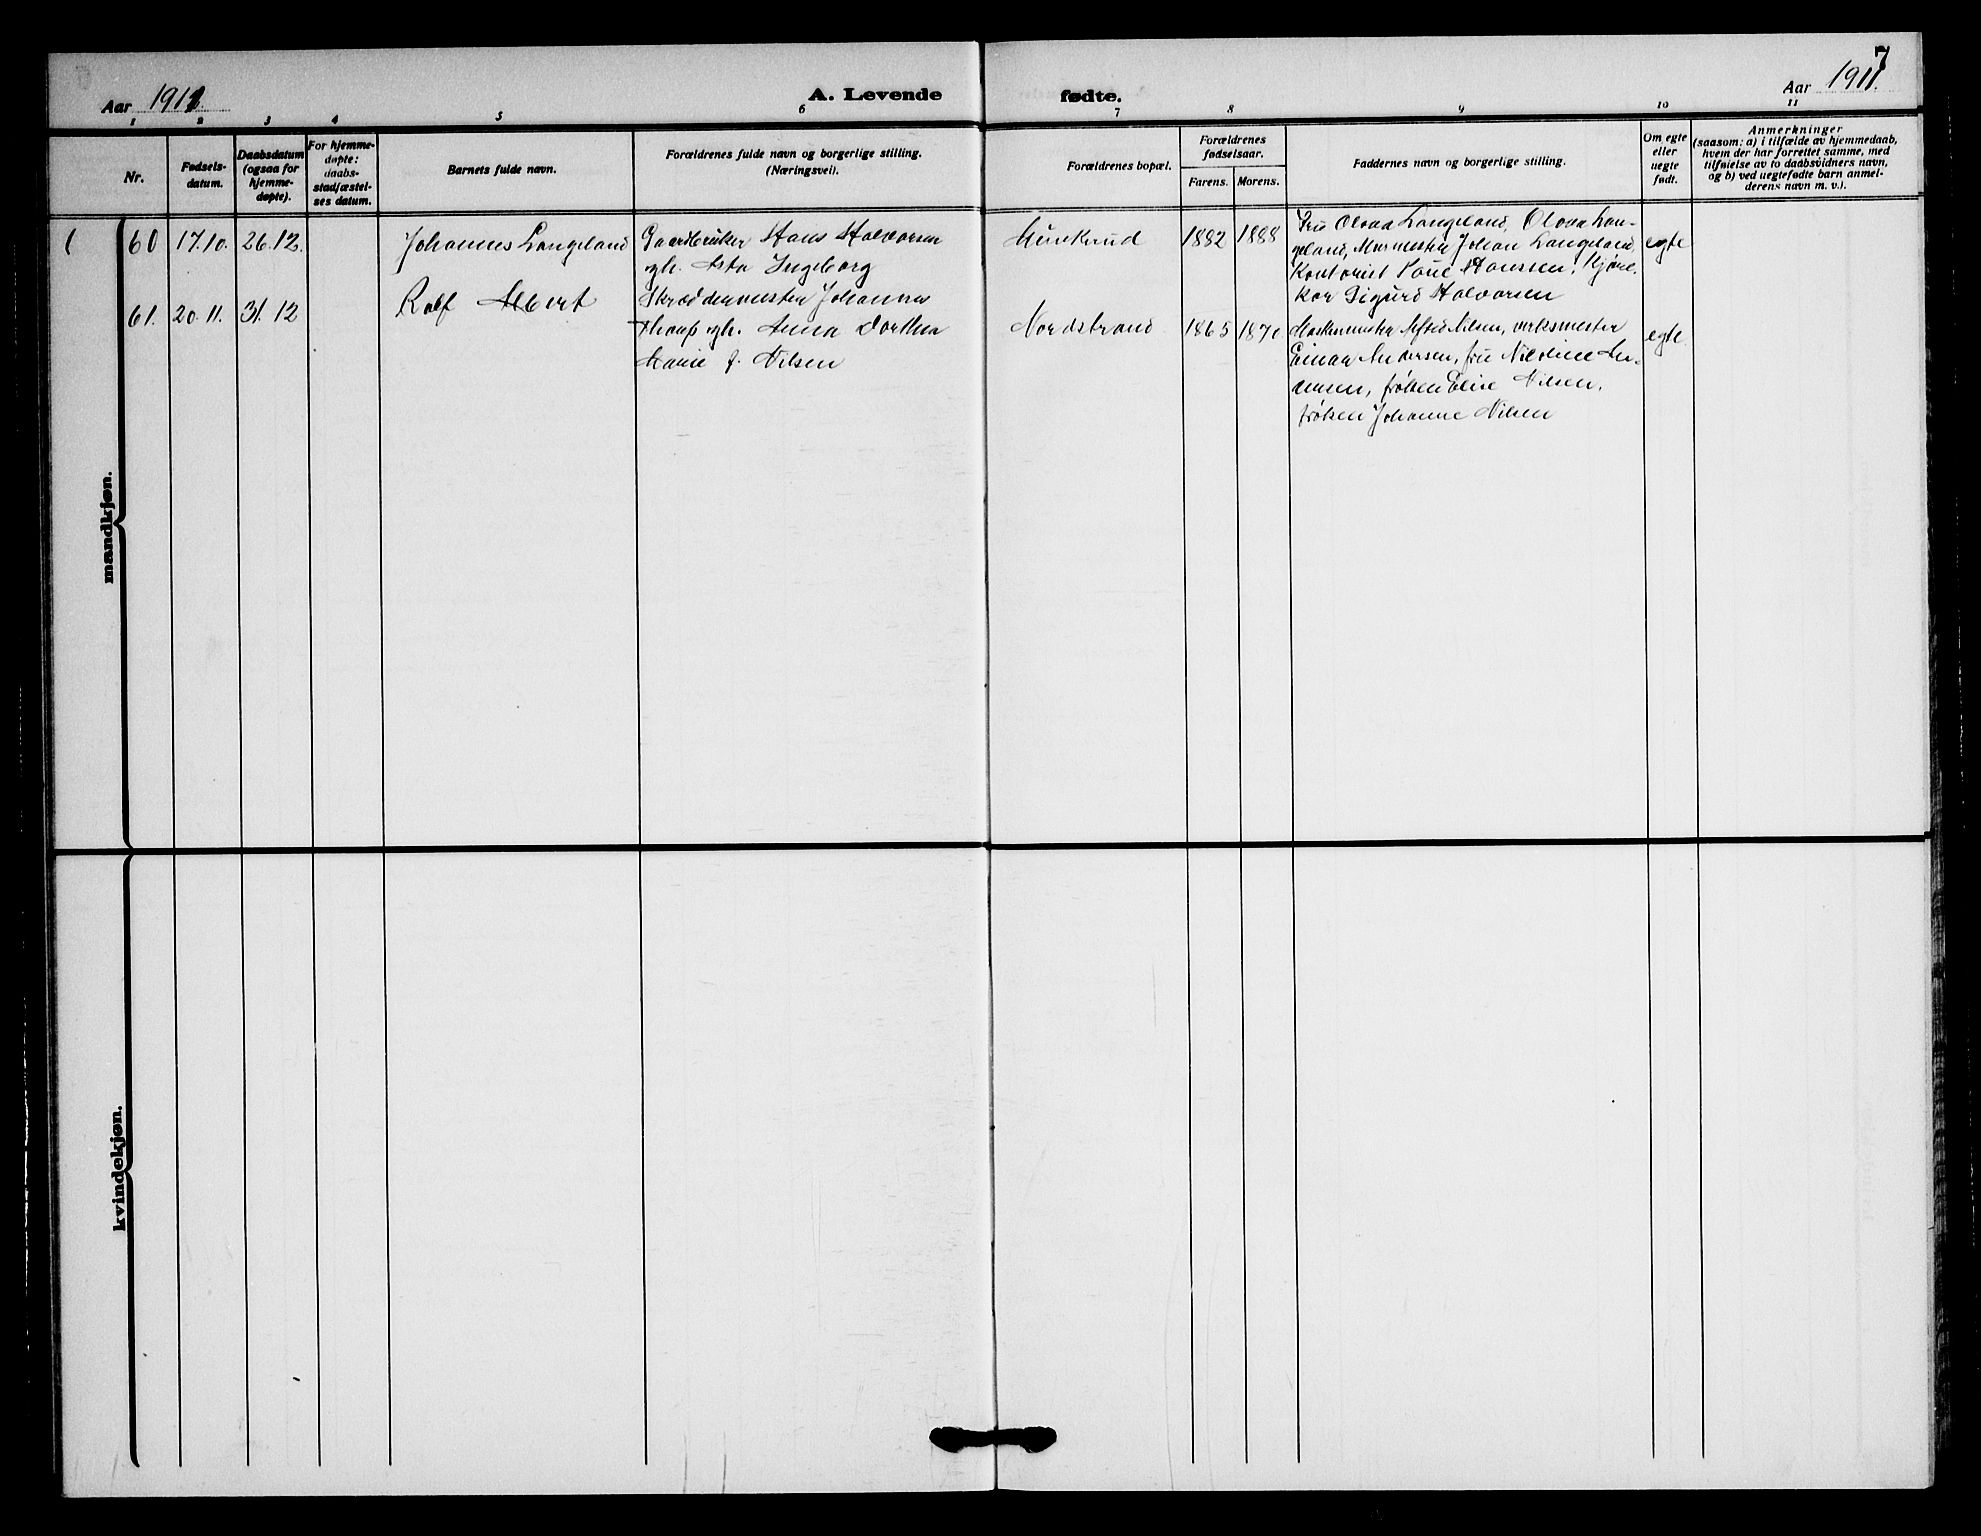 7
Aar 1911.
A. Levende
fødte.
Aar 1911.
1 2 3 4 5 6 7 8 9 10 11
Nr.
Fødsels-
datum.
Daabsdatum
(ogsaa for
hjemme-
døpte).
For hjemme-
døpte:
daabs-
stadfæstel-
ses datum.
Barnets fulde navn.
Forældrenes fulde navn og borgerlige stilling.
(Næringsvei).
Forældrenes bopæl.
Forældrenes
fødselsaar.
Farens. Morens.
Faddernes navn og borgerlige stilling.
Om egte
eller
uegte
født.
Anmerkninger
(saasom: a) i tilfælde av hjemmedaab,
hvem der har forrettet samme, med
tilføielse av to daabsvidners navn,
og b) ved uegtefødte barn anmel-
derens navn m. v.).
mandkjøn.
60 17.10. 26.12.
Johannes Langeland
Gaardbruker Hans Halvorsen
og h. Asta Ingeborg
Munkerud
1882 1888
Fru Olava Langeland, Olava Lan-
geland, Murmester Johan Langeland,
Kontorist Hanssen,
Sigurd Halvorsen
egte
61. 20.11. 31.12
Rolf Albert
Skræddermester Johannes
og h. Anna Dorthea
Marie f. Nilsen
Nordstrand
1865 1870
Alfred Nilsen, verksmester
Einar Andersen, fru Nicoline An-
dersen, frøken Elise Nilsen,
frøken Johanne Nilsen
egte
kvindekjøn.